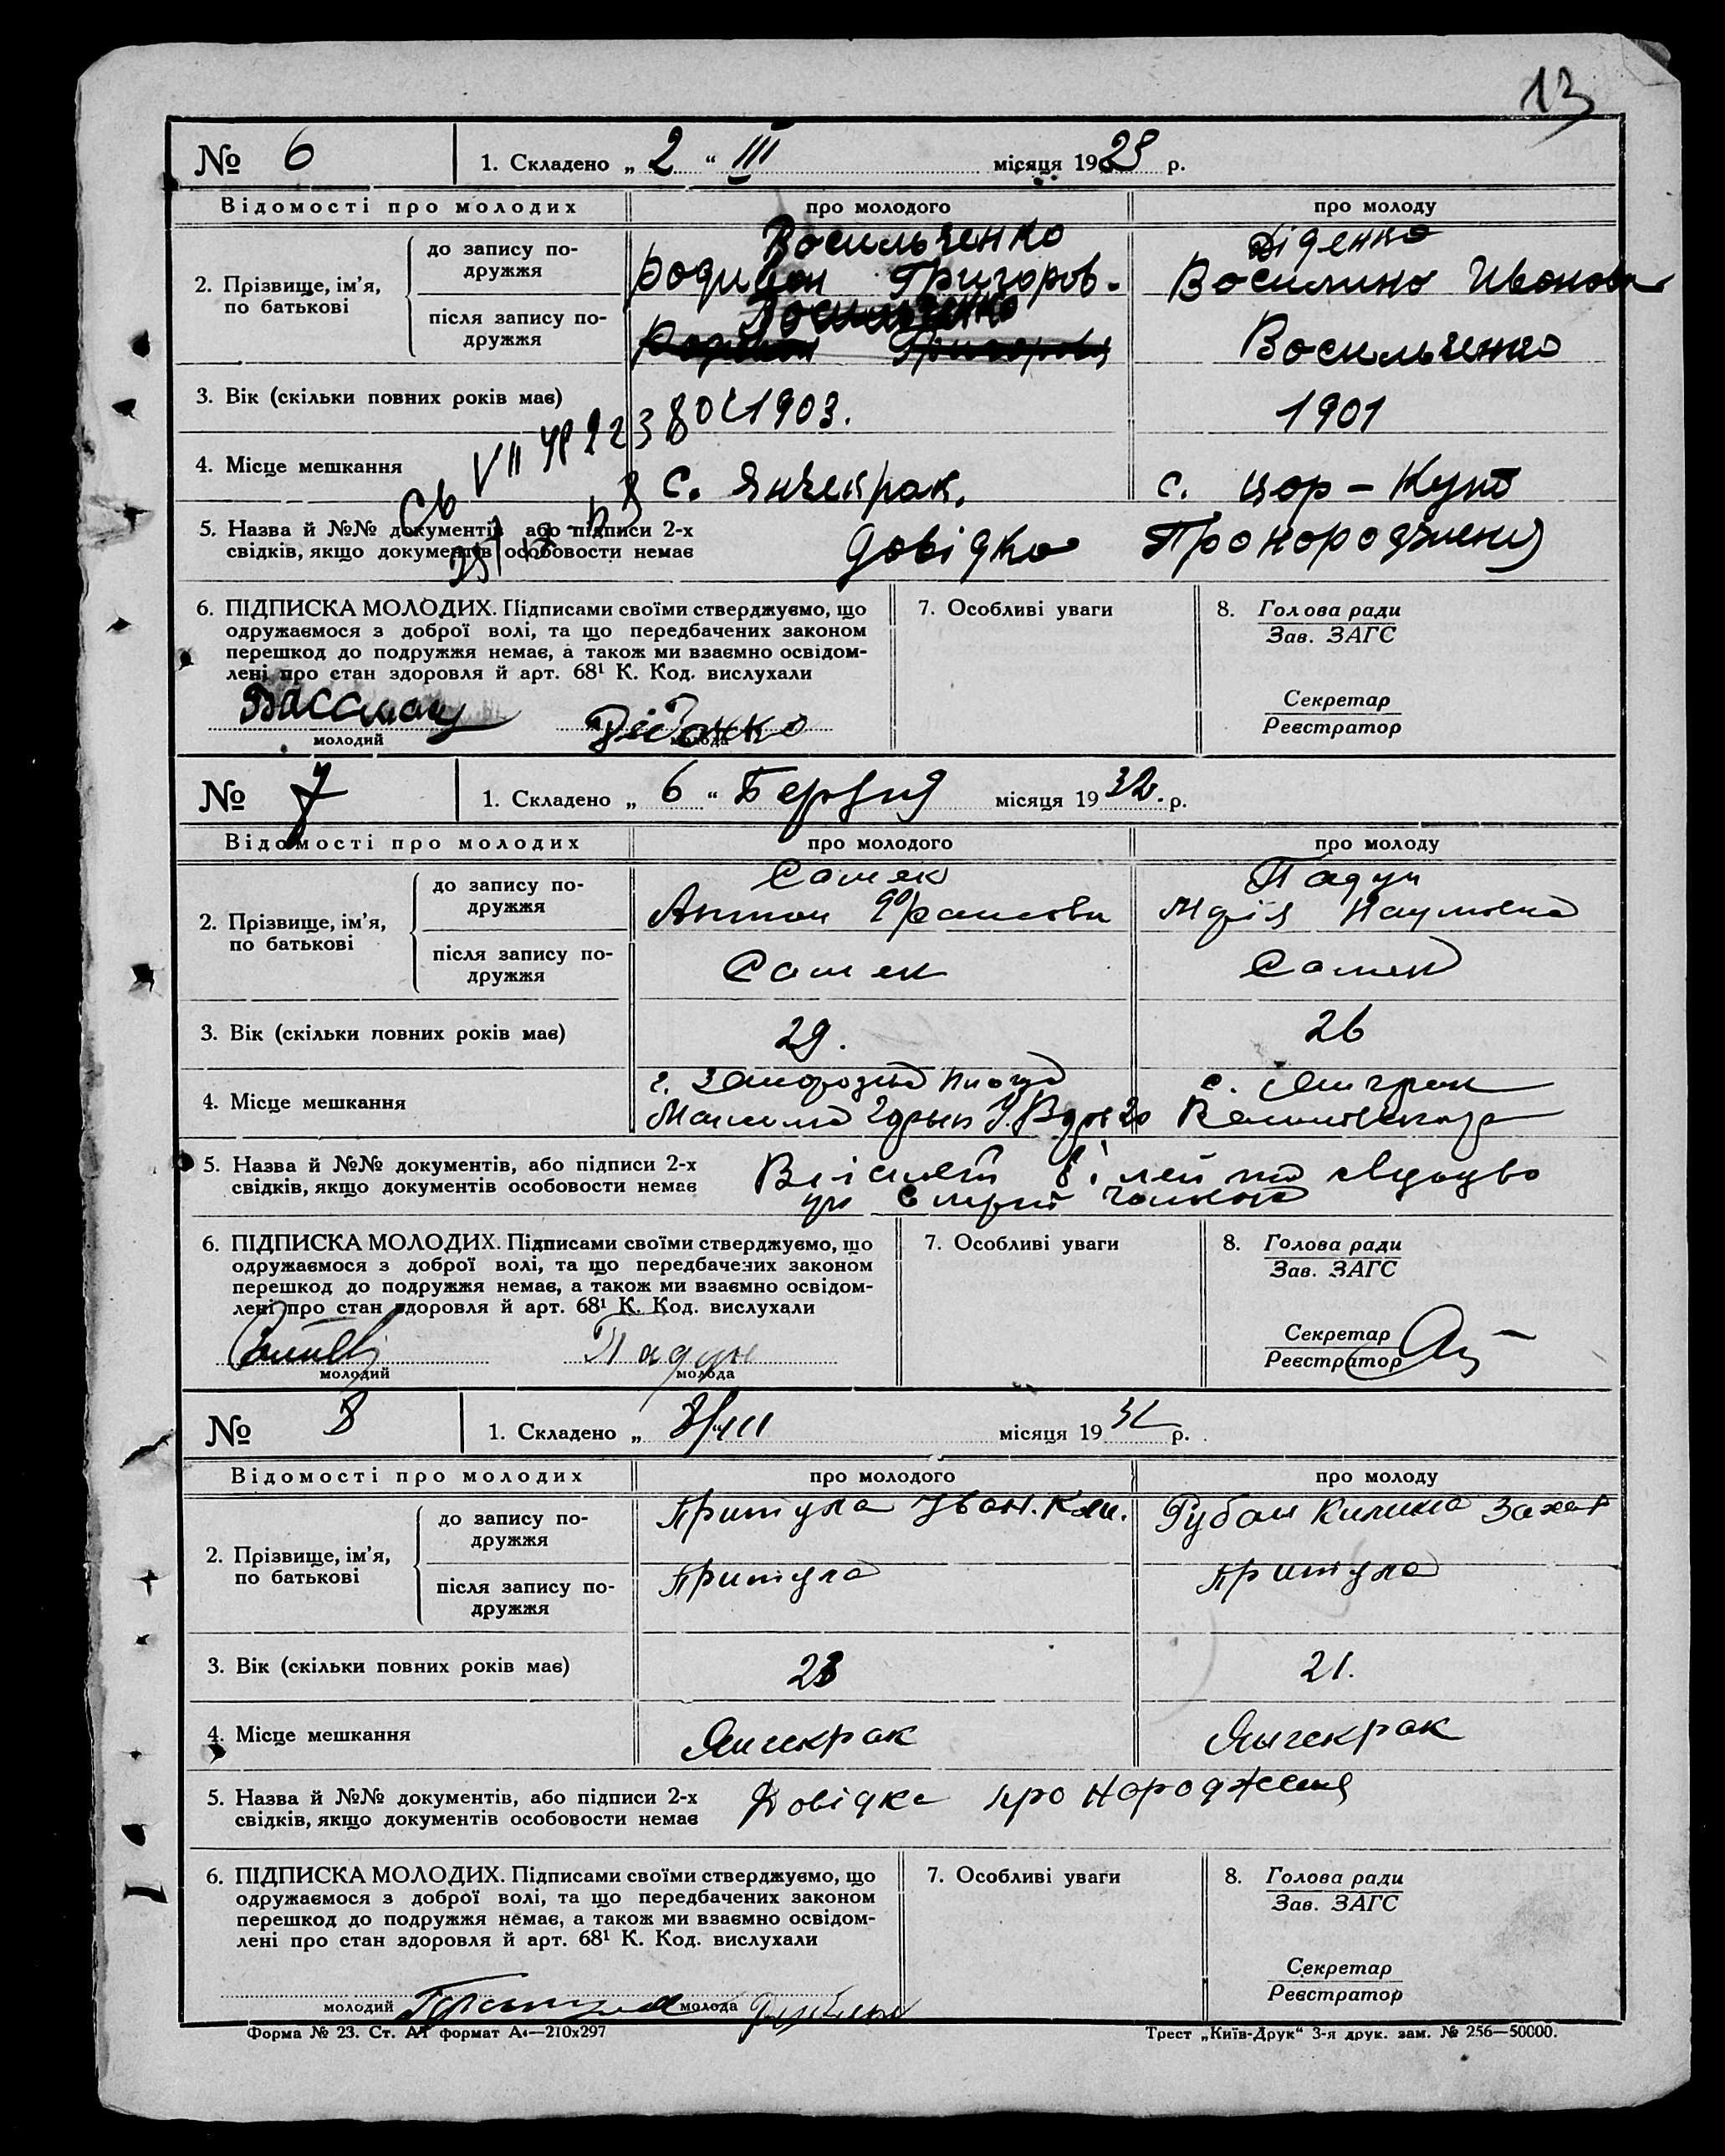 13
№ 6 1. Складено „ 2 “ III місяця 19 р.
Відомості про молодих про молодого про молоду
2. Прізвище, ім'я, по батькові
до запису подружжя
Восильченко Діденко
Родивон Григоров. Восилино Ивонов
після запису подружжя
Восильченко
1903. 1901
3. Вік (скільки повних років має)
4. Місце мешкання
с. Янчекрак. с. цор-Кут
5. Назва й №№ документів або підписи 2-х
свідків, якщо документів особовости немає
довідко Про нороджения
6. ПІДПИСКА МОЛОДИХ. Підписами своїми стверджуємо, що
одружаємося з доброї волі, та що передбачених законом
перешкод до подружжя немає, а також ми взаємно освідом-
лені про стан здоров'я й арт. 68¹ К. Код. вислухали
7. Особливі уваги
8. Голова ради
Зав. ЗАГС
Секретар
Реєстратор
Діденко
молодий молода
№ 7 1. Складено „ 6 “ Березня місяця 19 32. р.
Відомості про молодих про молодого про молоду
2. Прізвище, ім'я, по батькові
до запису подружжя
Сомек Падун
Антон Наумовна
після запису подружжя
Сомек Сомек
3. Вік (скільки повних років має)
29. 26
4. Місце мешкання
5. Назва й №№ документів, або підписи 2-х
свідків, якщо документів особовости немає
6. ПІДПИСКА МОЛОДИХ. Підписами своїми стверджуємо, що
одружаємося з доброї волі, та що передбачених законом
перешкод до подружжя немає, а також ми взаємно освідом-
лені про стан здоровля й арт. 68¹ К. Код. вислухали
7. Особливі уваги
8. Голова ради
Зав. ЗАГС
Секретар
Реєстратор
Падун
молодий молода
№ 8 1. Складено „ 8/III місяця 19 32 р.
Відомості про молодих про молодого про молоду
2. Прізвище, ім'я, по батькові
до запису подружжя
Притула Іван. Кли. Рубан Килина Захар
після запису подружжя
Притула Притула
3. Вік (скільки повних років має)
23 21.
4. Місце мешкання
Янчекрак Янчекрак
5. Назва й №№ документів, або підписи 2-х
свідків, якщо документів особовости немає
Довідка про нородження
6. ПІДПИСКА МОЛОДИХ. Підписами своїми стверджуємо, що
одружаємося з доброї волі, та що передбачених законом
перешкод до подружжя немає, а також ми взаємно освідом-
лені про стан здоровля й арт. 68¹ К. Код. вислухали
7. Особливі уваги
8. Голова ради
Зав. ЗАГС
Секретар
Реєстратор
молодий молода
Форма № 23. Ст. А4 формат А4—210х297 Трест „Київ-Друк“ 3-я друк. зам. № 256—50000.